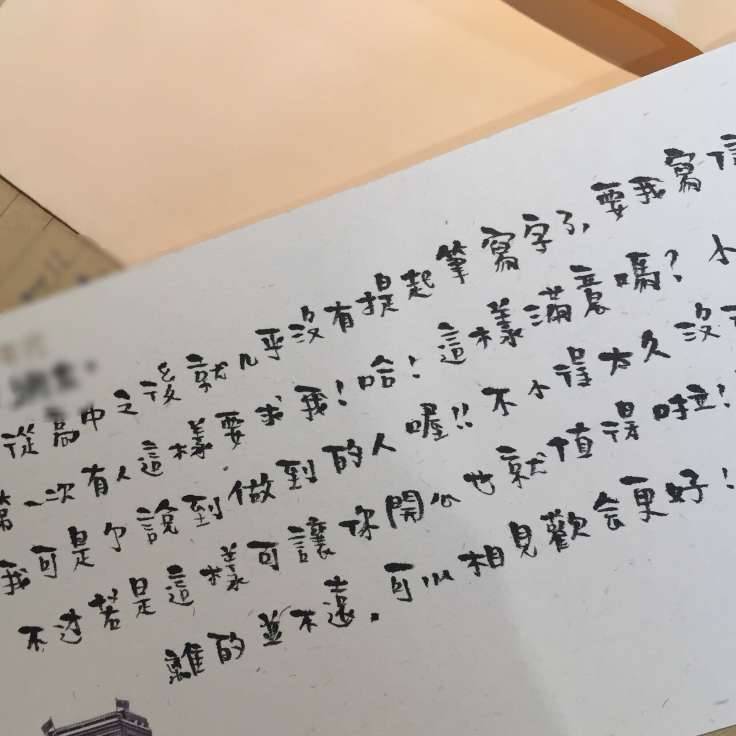 從高中之後就几乎沒有提起筆寫字了,要我寫信
第一次有人這樣要求我!哈!這樣滿意嗎?小
我可是個說到做到的人喔!!不小得太久沒
不過若是這樣可讓你開心也就值得啦!
離的並不遠。可以相見歡會更好!